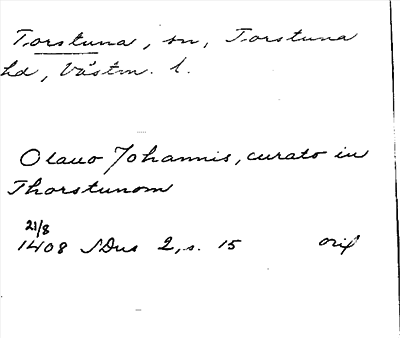 Torstuna, sn, Torstuna
hd, Västm. l.
Olauo Johannis, curato in
Thorstunom
21/8
1408 SDns 2, s. 15 orig